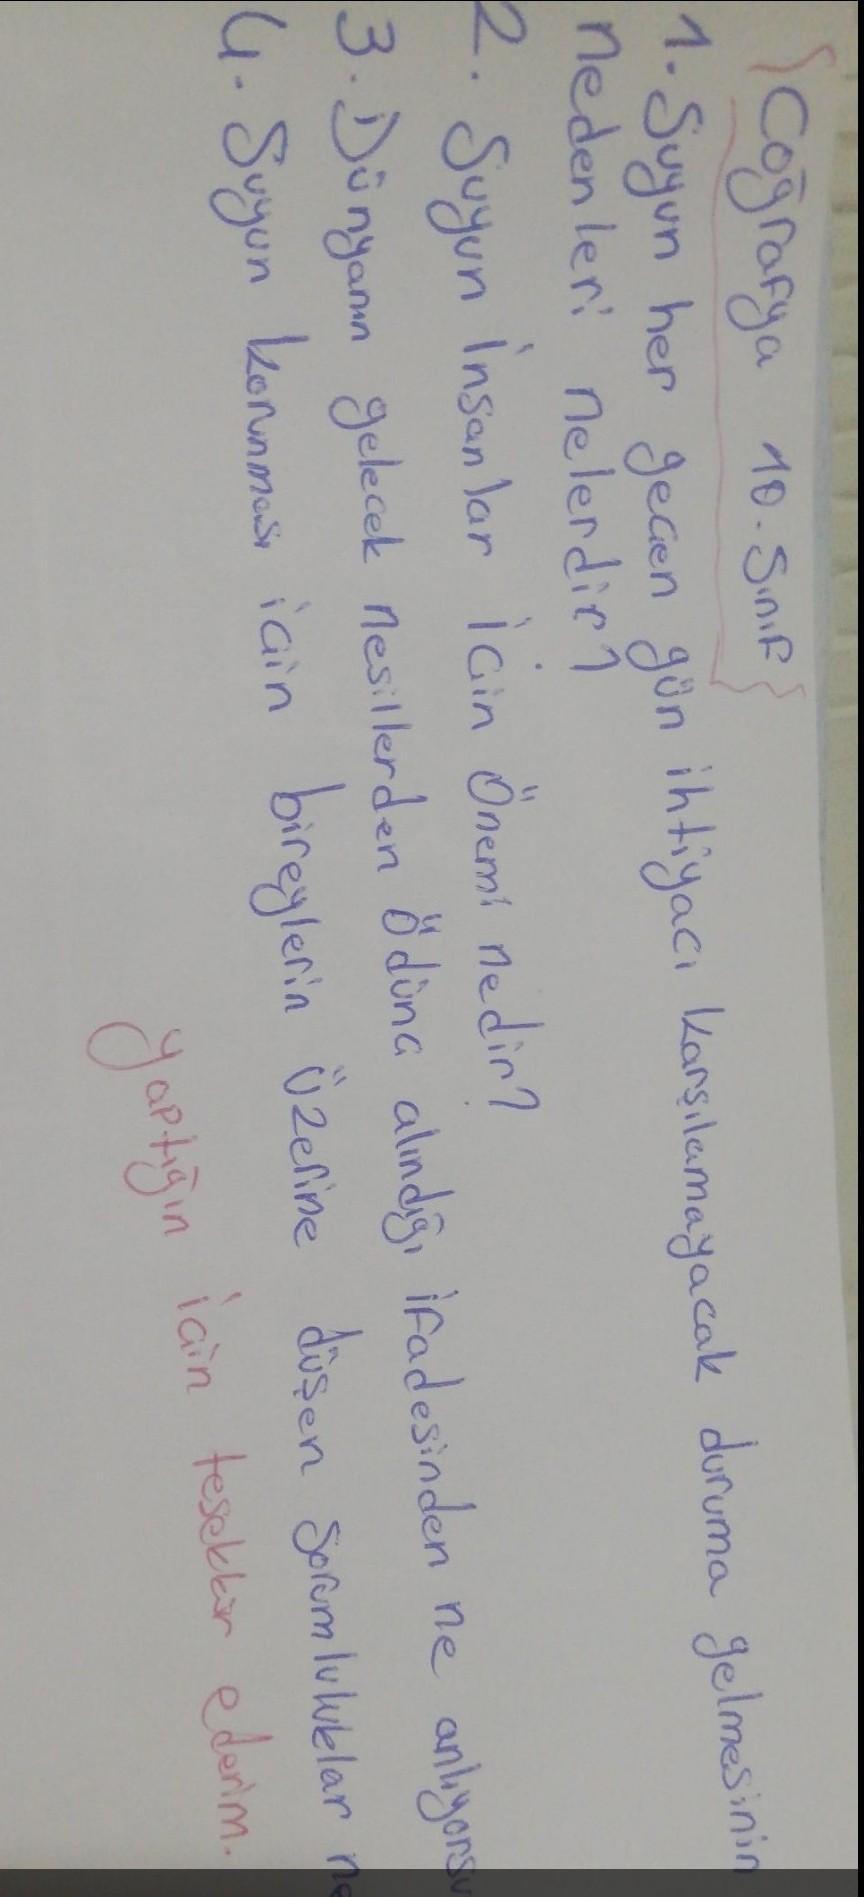 Coğrafya 10. Sınıf
1. Suyun her geçen gün ihtiyacı karşılamayacak duruma gelmesinin
nedenleri nelerdir?
2. Suyun insanlar için önemi nedir?
3. Dünyanın gelecek nesillerden ödünç alındığı ifadesinden ne anlıyorsu
4. Suyun korunması için bireylerin üzerine düşen sorumluluklar ne
yaptığın için teşekkür ederim.